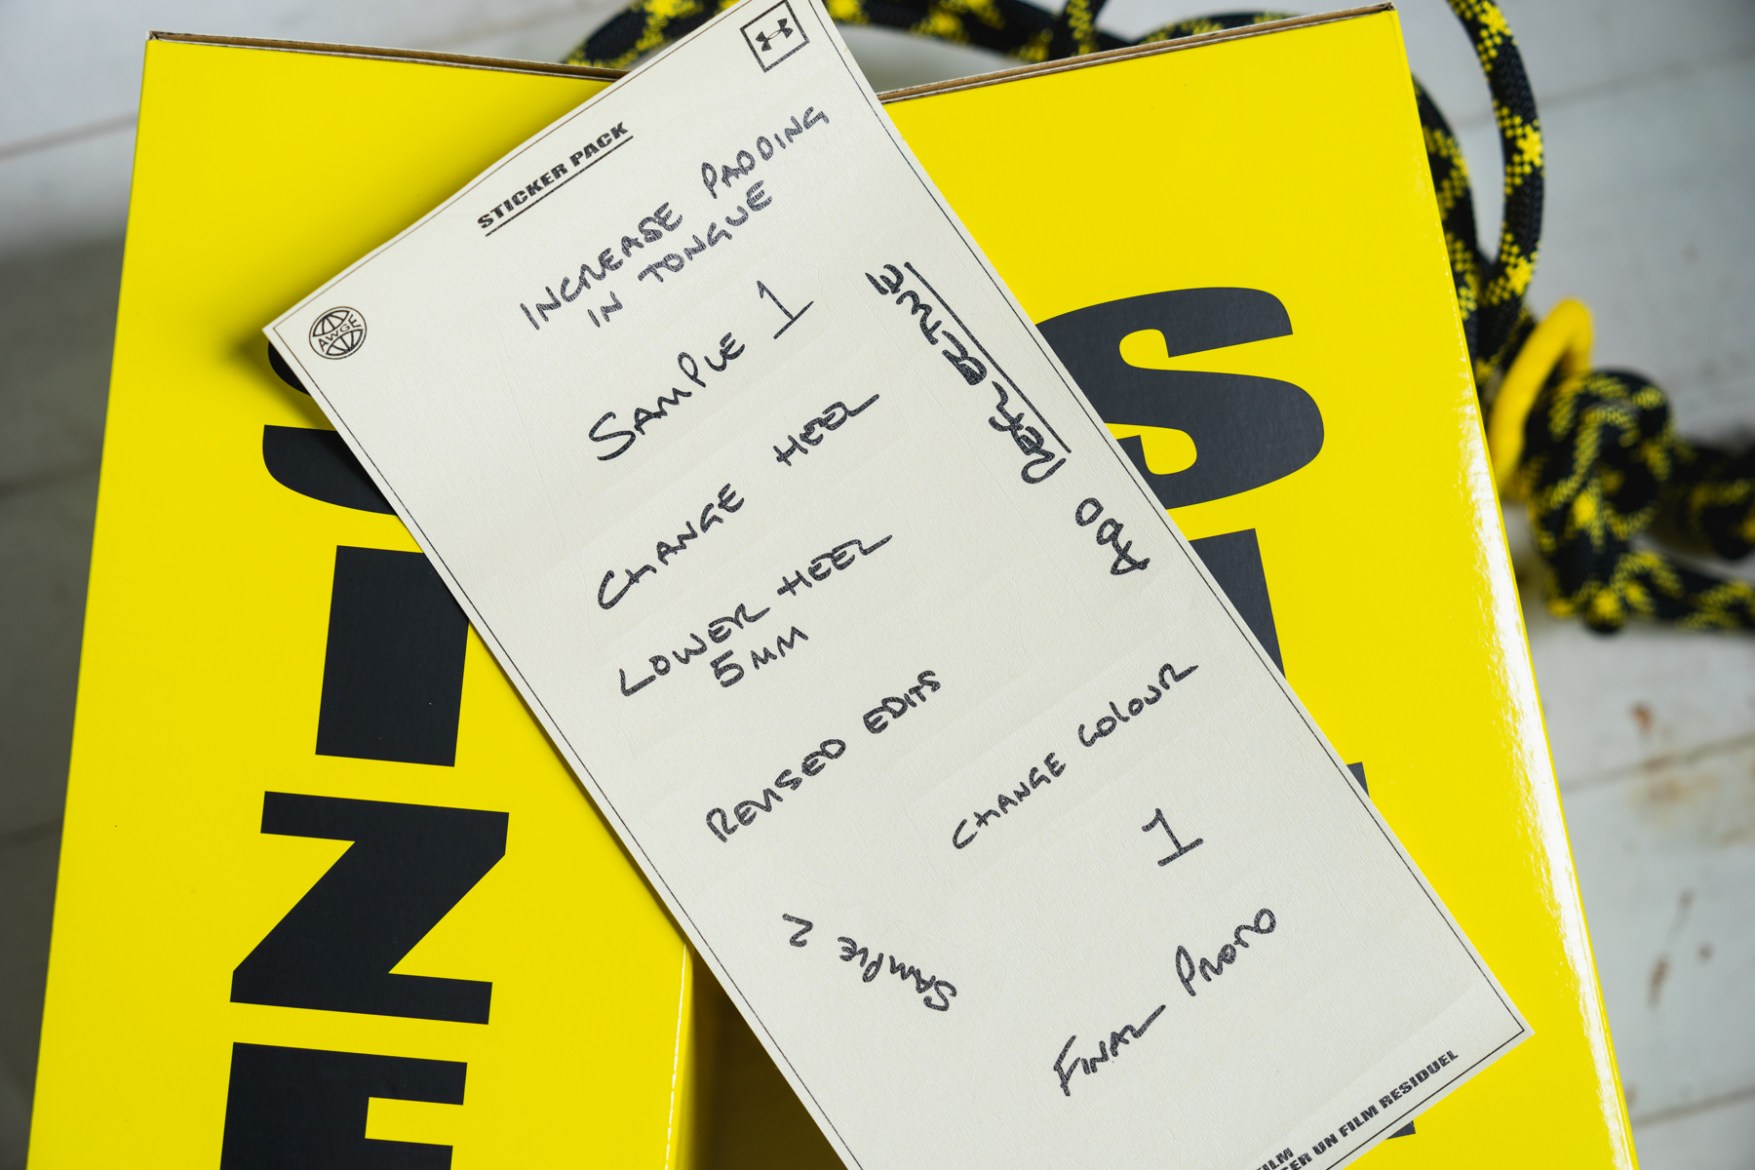 STICKER PACK
AWGE
INCREASE PADDING
IN TONGUE
SAMPLE 1
CHANGE HEEL
LOWER HEEL
5MM
REVISED EDITS
ADD
CHANGE COLOUR
1
SAMPLE 2
FINAL PROTO
FILM
UN FILM RESIDUEL
S
S
I
Z
E